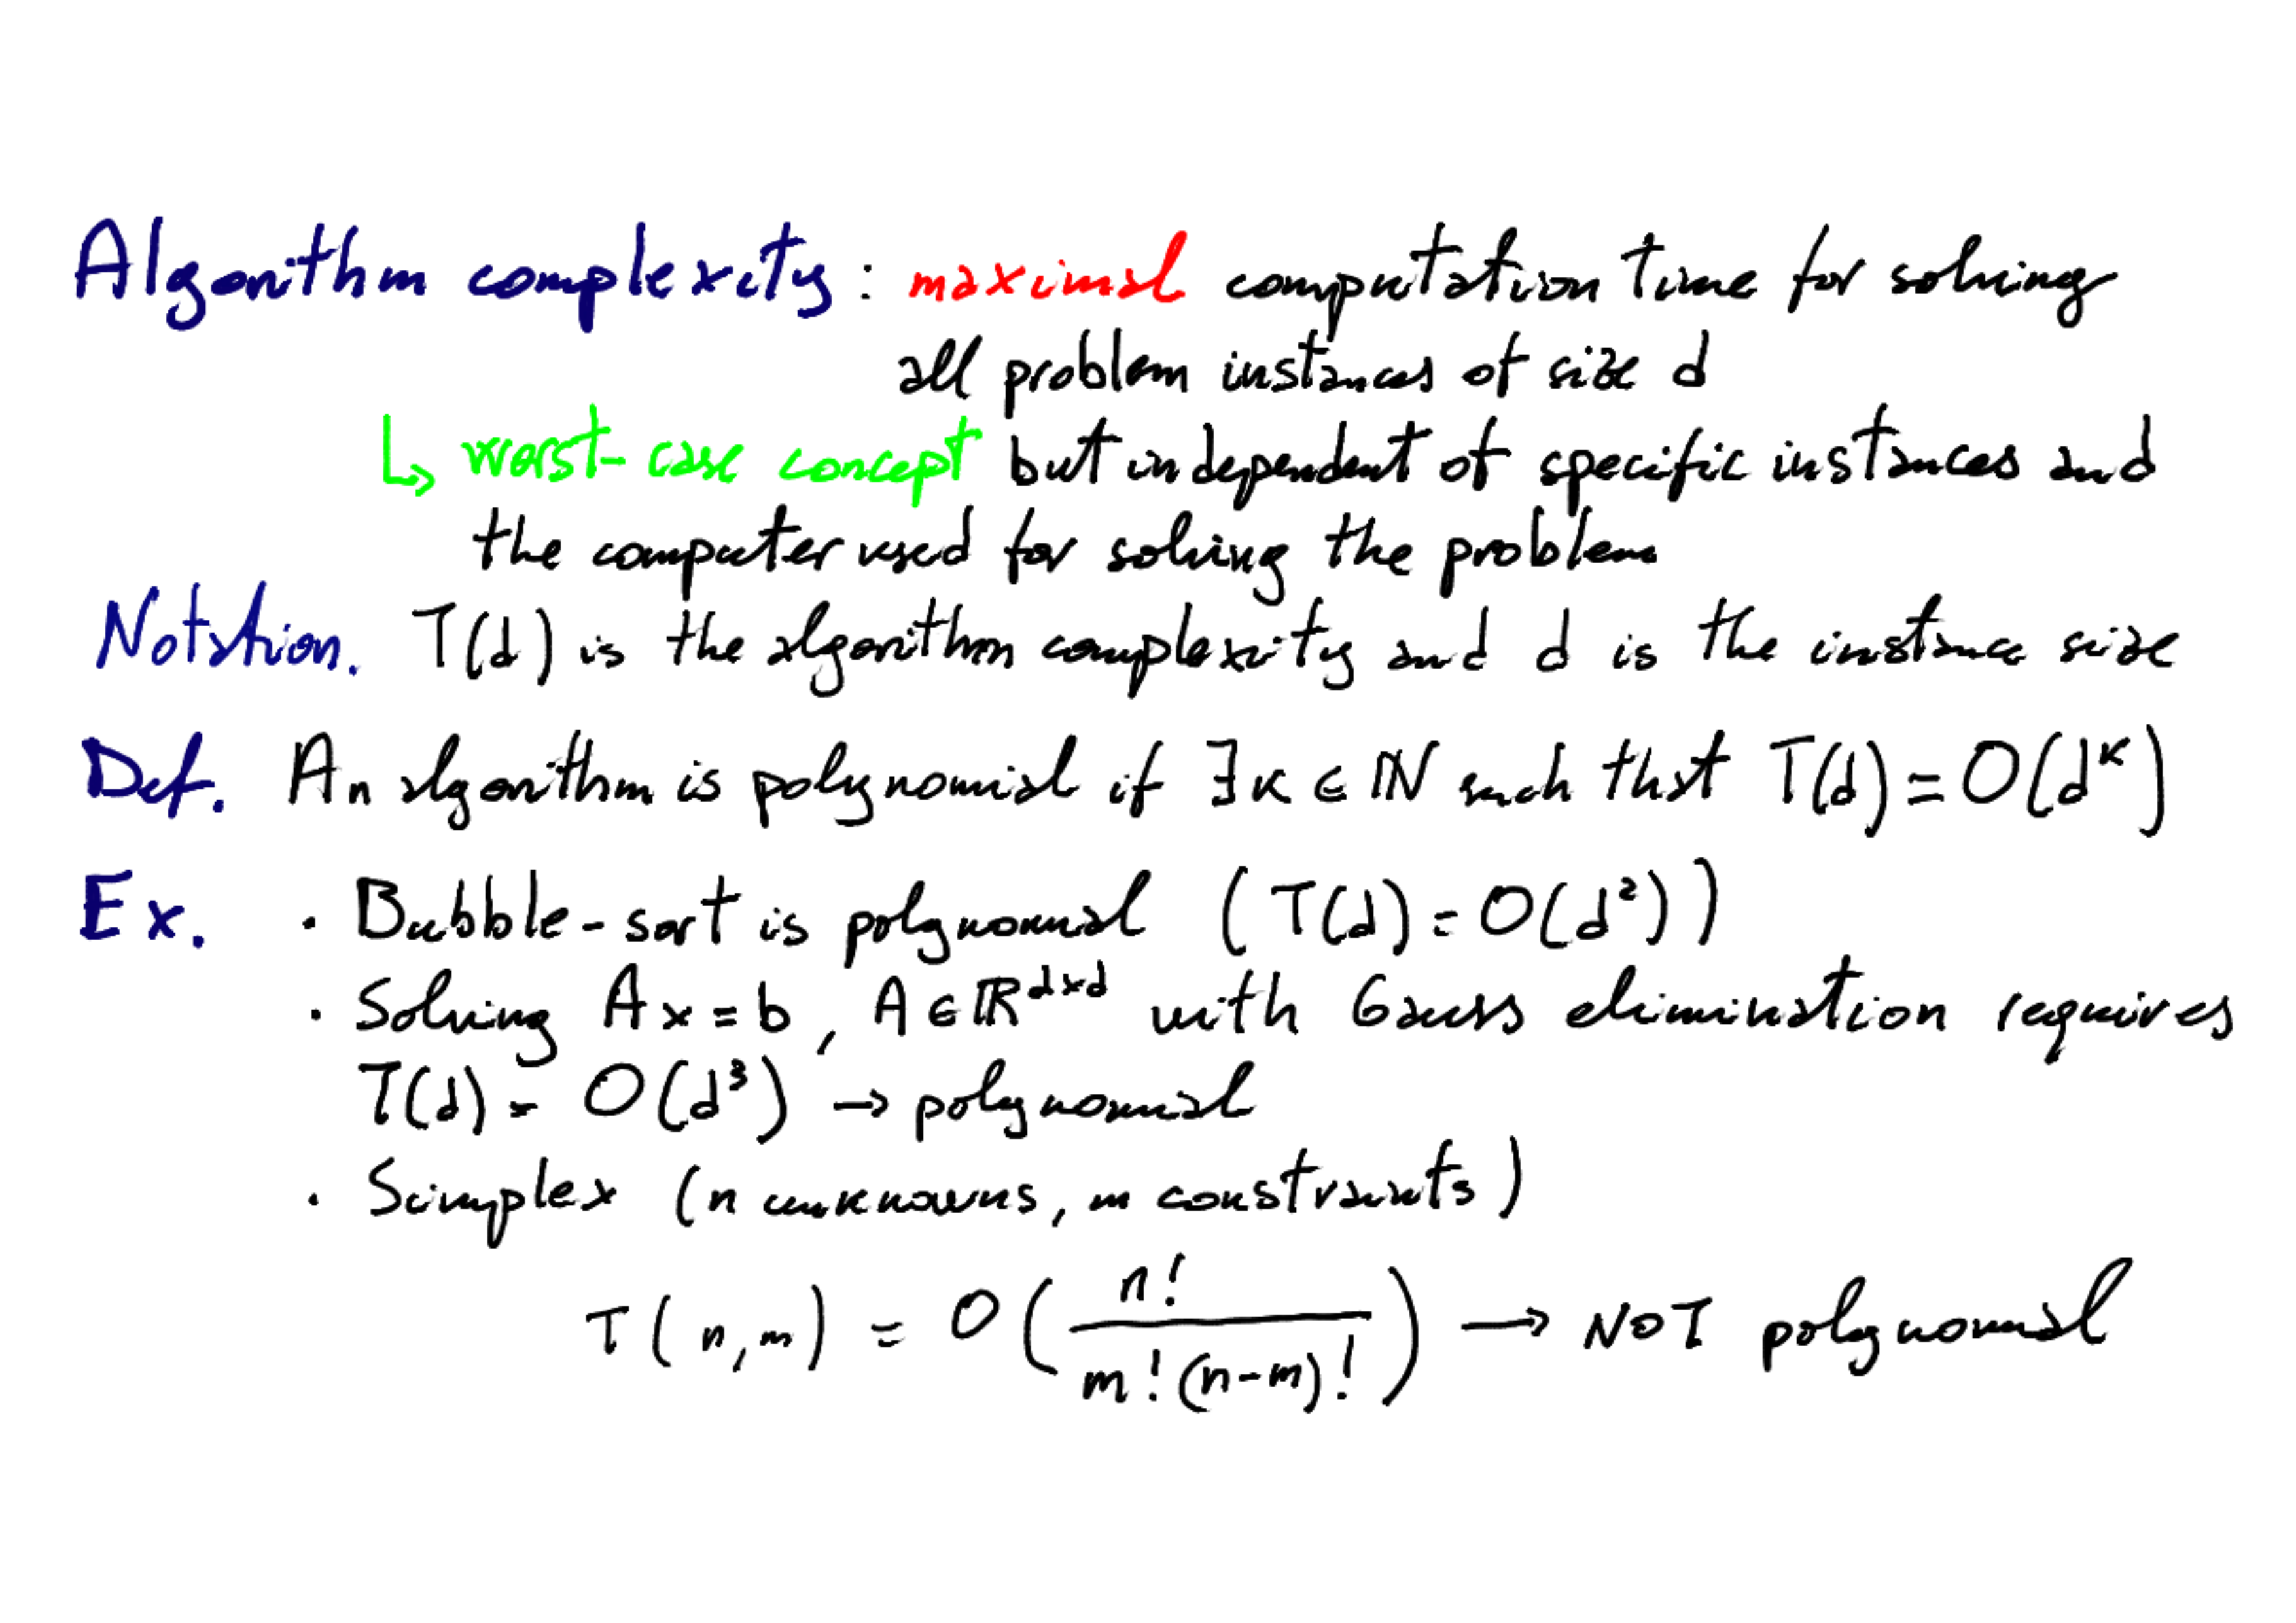 Algorithm complexity : maximal computation time for solving
all problem instances of size d
↳ worst-case concept but independent of specific instances and
the computer used for solving the problem
Notation. T(d) is the algorithm complexity and d is the instance size
Def. An algorithm is polynomial if ∃ κ ∈ ℕ such that T(d) = O(d^κ)
Ex. · Bubble-sort is polynomial ( T(d) = O(d²) )
· Solving Ax = b, A ∈ ℝ^{d×d} with Gauss elimination requires
T(d) = O(d³) → polynomial
· Simplex (n unknowns, m constraints)
T(n,m) = O( n! / m!(n-m)! ) → NOT polynomial